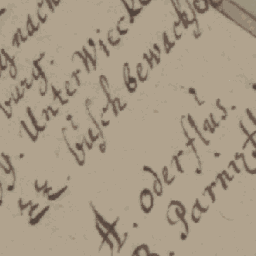 g nach
burg.
y. Unter Wiecke
EE. büsch bewachsen
A. oderflus.
B. Parnitz